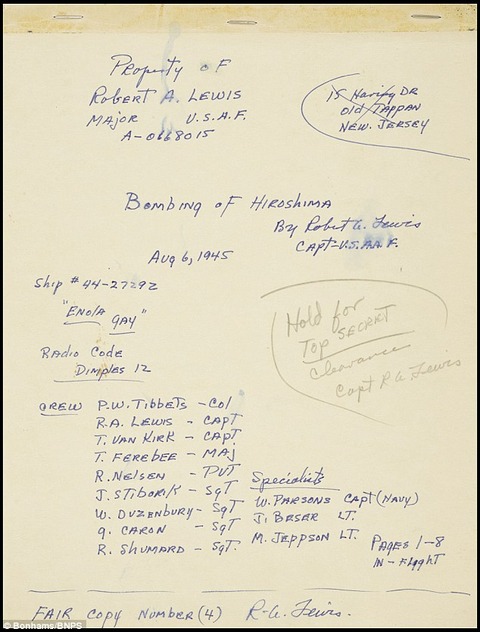 Property of
Robert A. LEWIS
MAJOR U.S.A.F.
A-0668015
15 Harify DR
Old TAPPAN
NEW. JERSEY
Bombing of HIROSHIMA
By Robert A. Lewis
CAPT-U.S.AA.F.
Aug 6, 1945
Ship # 44-27292
"ENOLA GAY"
Radio Code
Dimples 12
Hold for
Top SECRET
Clearance
Capt R A Lewis
CREW P.W. TIBBETS - Col
R.A. LEWIS - CAPT
T. VAN KIRK - CAPT
T. FEREBEE - MAJ
R. NELSEN - PVT
J. STIBORIK - SgT
W. DUZENBURY - SgT
G. CARON - SgT
R. SHUMARD - SgT.
Specialists
W. PARSONS CAPT (NAVY)
J. BESER LT.
M. JEPPSON LT.
PAGES 1-8
IN-FlighT
FAIR COPY NUMBER (4) R-A. Lewis.
© Bonhams/BNPS